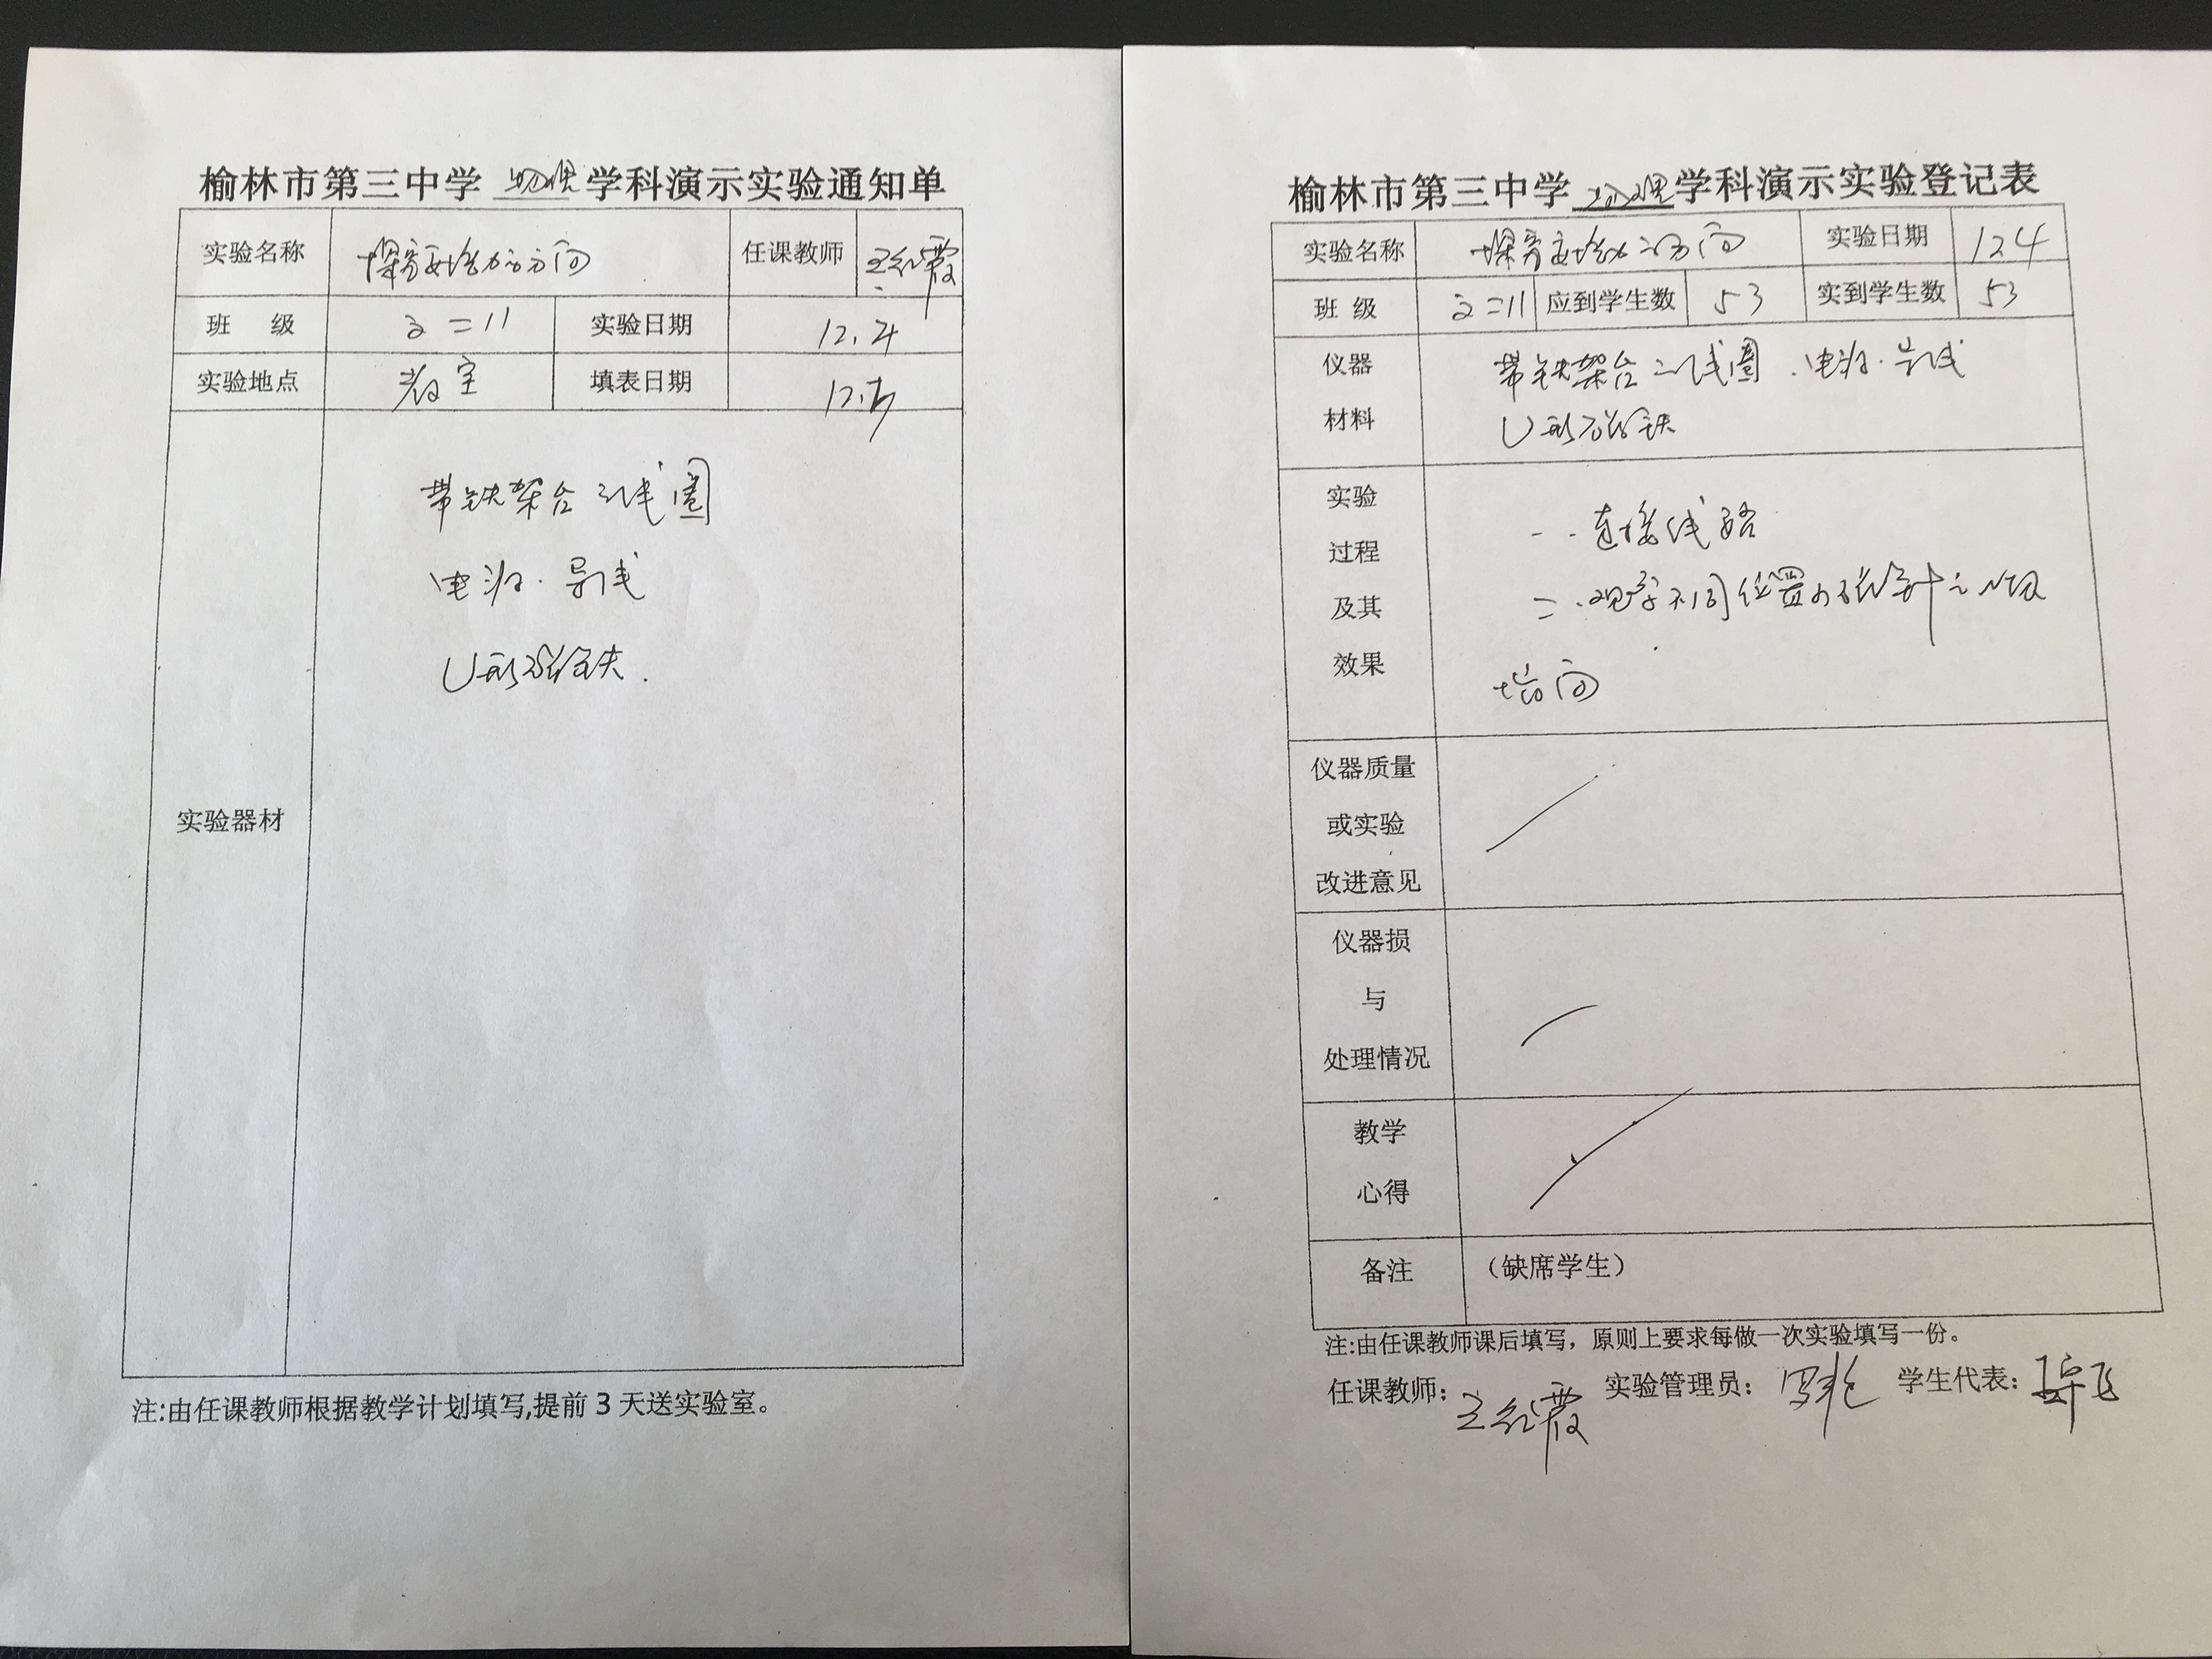 榆林市第三中学 物理 学科演示实验通知单
实验名称 探究安培力的方向 任课教师 王红霞
班 级 高二11 实验日期 12.4
实验地点 教室 填表日期
实验器材
带铁架台 线圈
电源.导线
U形磁铁.
注:由任课教师根据教学计划填写,提前3天送实验室。
榆林市第三中学 物理 学科演示实验登记表
实验名称 探究安培力的方向 实验日期 12.4
班 级 高二11 应到学生数 53 实到学生数 53
仪器
材料
带铁架台 线圈.电源.导线
U形磁铁
实验
过程
及其
效果
一.连接线路
二.观察不同位置 磁针
指向
仪器质量
或实验
改进意见
仪器损
与
处理情况
教学
心得
备注 （缺席学生）
注:由任课教师课后填写，原则上要求每做一次实验填写一份。
任课教师: 王红霞 实验管理员: 学生代表: